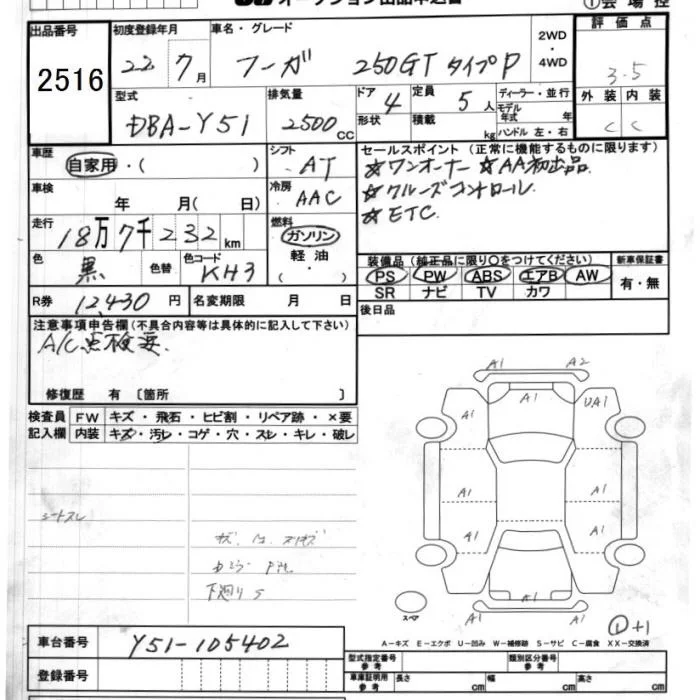 オークション出品申込書 ①会場控
出品番号 初度登録年月 車名・グレード 2WD・4WD 評価点
2516 22 7月 フーガ 250GT タイプP 3.5
型式 排気量 ドア 4 定員 5人 ディーラー・並行 外装 内装
DBA-Y51 2500cc 形状 積載 kg モデル年式 年 ハンドル 左・右 C C
車歴 自家用・( ) シフト AT セールスポイント (正常に機能するものに限ります)
☆ワンオーナー ☆AA初出品
車検 年 月( 日) 冷房 AAC ☆クルーズコントロール
☆ETC
走行 18万7千232km 燃料 ガソリン 軽油・
色 黒 色替 色コード KH3 装備品 (純正品に限り○をつけてください) 新車保証書
PS PW ABS エアB AW 有・無
R券 12,430円 名変期限 月 日 SR ナビ TV カワ
注意事項申告欄(不具合内容等は具体的に記入して下さい) 後日品
A/C点検要
修復歴 有 〔箇所 〕
検査員 FW キズ・飛石・ヒビ割・リペア跡・×要
記入欄 内装 キズ・汚レ・コゲ・穴・スレ・キレ・破レ
A1 A2
A1
A1 UA1
A1 A1
A1 A1
シートスレ
下廻りS
A1
A1
スペア
①+1
A-キズ E-エクボ U-凹み W-補修跡 S-サビ C-腐食 XX-交換済
車台番号 Y51-105402
型式指定番号 参考 類別区分番号 参考
登録番号 車庫証明用 参考 長さ cm 幅 cm 高さ cm